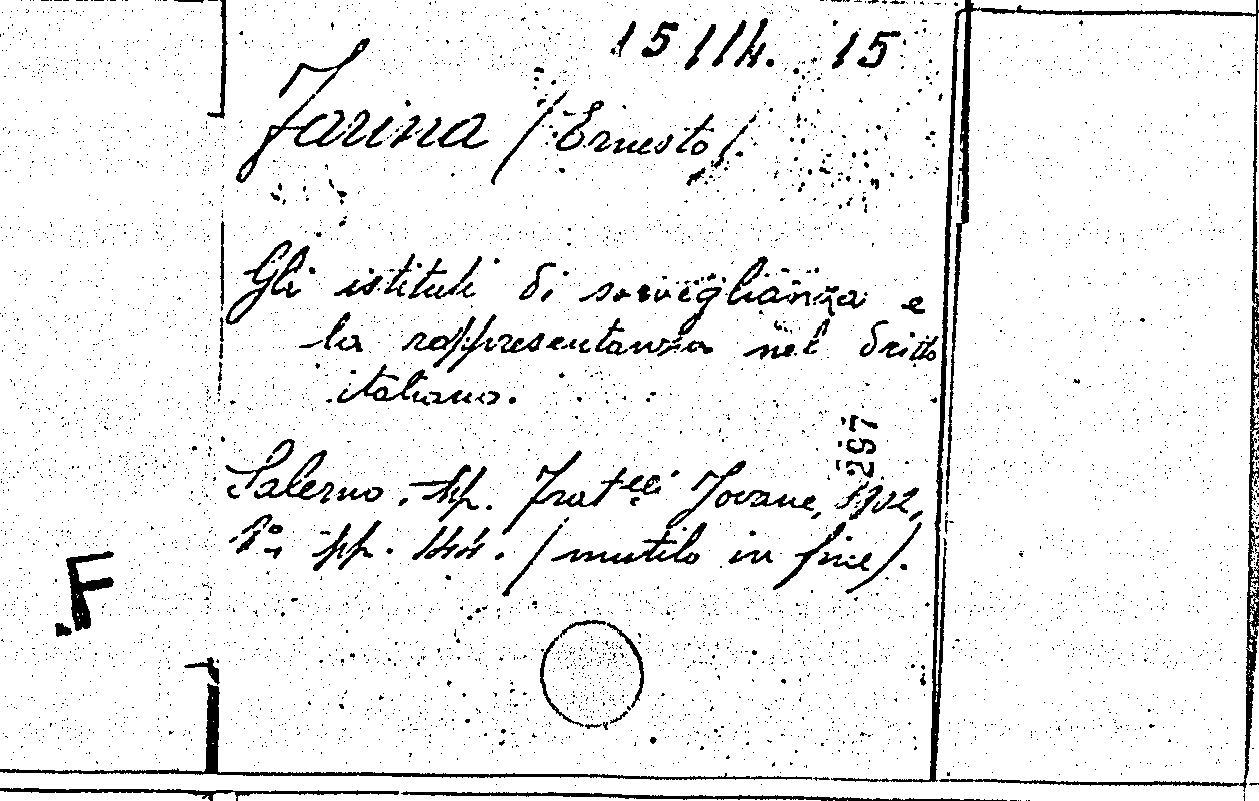 15 114. 15
Farina (Ernesto).
Gli istituti di sorveglianza e
la rappresentanza nel dritto
italiano.
297
Salerno, tip. Fratelli Jovane, 1902,
8º, pp. 144. (mutilo in fine).
.F